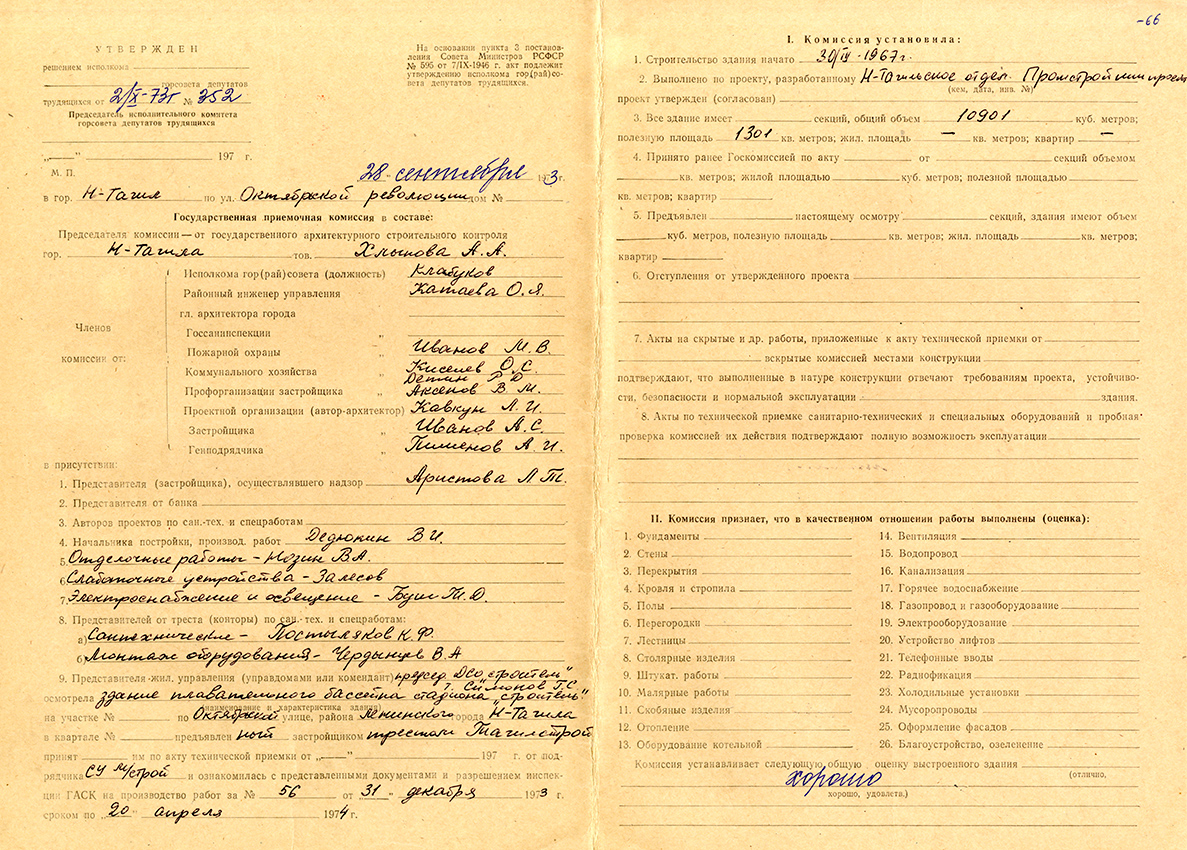 УТВЕРЖДЕН
решением исполкома
горсовета депутатов
трудящихся от 2/X-73г № 352
Председатель исполнительного комитета
горсовета депутатов трудящихся
„ “ 197 г.
М. П.
На основании пункта 3 постанов-
ления Совета Министров РСФСР
№ 595 от 7/IX-1946 г. акт подлежит
утверждению исполкома гор(рай)со-
вета депутатов трудящихся.
28 сентября 1973г.
в гор. Н-Тагил по ул. Октябрской революции дом №
Государственная приемочная комиссия в составе:
Председателя комиссии — от государственного архитектурного строительного контроля
гор. Н-Тагила тов. Хлынова А.А.
Членов
комиссии от:
Исполкома гор(рай)совета (должность) Клабуков
Районный инженер управления Катаева О.Я.
гл. архитектора города
Госсанинспекции „
Пожарной охраны „ Иванов М.В.
Коммунального хозяйства „ Киселев О.С.
Детин Р Д
Профорганизации застройщика „ Аксенов В М.
Проектной организации (автор-архитектор) Кавкун Л.И.
Застройщика „ Иванов А.С.
Генподрядчика „ Пименов А.И.
в присутствии:
1. Представителя (застройщика), осуществлявшего надзор Аристова Л.Т.
2. Представителя от банка
3. Авторов проектов по сан.-тех. и спецработам
4. Начальника постройки, производ. работ Дедюкин В И.
5. Отделочные работы - Нозин В.А.
6. Слаботочные устройства - Залесов
7. Электроснабжение и освещение - Буш Т.Д.
8. Представителей от треста (конторы) по сан.-тех. и спецработам:
а) Сантехнические - Постыляков К.Ф.
б) Монтаж оборудования - Чердынцев В.А
9. Представителя жил. управления (управдомами или комендант) председ ДСО „строитель“
Симонов Г.С.
осмотрела здание плавательного бассейна стадиона „строитель“
(наименование и характеристика здания)
на участке № по Октябрской улице, района Ленинского города Н-Тагила
в квартале № предъявлен ный застройщиком трестом Тагилстрой
принят им по акту технической приемки от „ “ 197 г. от под-
рядчика СУ М/строй и ознакомилась с представленными документами и разрешением инспек-
ции ГАСК на производство работ за № 56 от 31 „ декабря 1973 г.
сроком по „20“ апреля 1974 г.
-66
I. Комиссия установила:
1. Строительство здания начато 30/IV-1967г.
2. Выполнено по проекту, разработанному Н-Тагильское отдел. Промстройниипроект
(кем, дата, инв. №)
проект утвержден (согласован)
3. Все здание имеет секций, общий объем 10901 куб. метров;
полезную площадь 1301 кв. метров; жил. площадь — кв. метров; квартир —
4. Принято ранее Госкомиссией по акту от секций объемом
кв. метров; жилой площадью куб. метров; полезной площадью
кв. метров; квартир
5. Предъявлен настоящему осмотру секций, здания имеют объем
куб. метров, полезную площадь кв. метров; жил. площадь кв. метров;
квартир
6. Отступления от утвержденного проекта
7. Акты на скрытые и др. работы, приложенные к акту технической приемки от
вскрытые комиссией местами конструкции
подтверждают, что выполненные в натуре конструкции отвечают требованиям проекта, устойчиво-
сти, безопасности и нормальной эксплуатации здания.
8. Акты по технической приемке санитарно-технических и специальных оборудований и пробная
проверка комиссией их действия подтверждают полную возможность эксплуатации
II. Комиссия признает, что в качественном отношении работы выполнены (оценка):
1. Фундаменты
2. Стены
3. Перекрытия
4. Кровля и стропила
5. Полы
6. Перегородки
7. Лестницы
8. Столярные изделия
9. Штукат. работы
10. Малярные работы
11. Скобяные изделия
12. Отопление
13. Оборудование котельной
14. Вентиляция
15. Водопровод
16. Канализация
17. Горячее водоснабжение
18. Газопровод и газооборудование
19. Электрооборудование
20. Устройство лифтов
21. Телефонные вводы
22. Радиофикация
23. Холодильные установки
24. Мусоропроводы
25. Оформление фасадов
26. Благоустройство, озеленение
Комиссия устанавливает следующую общую оценку выстроенного здания
(отлично,
хорошо
хорошо, удовлетв.)